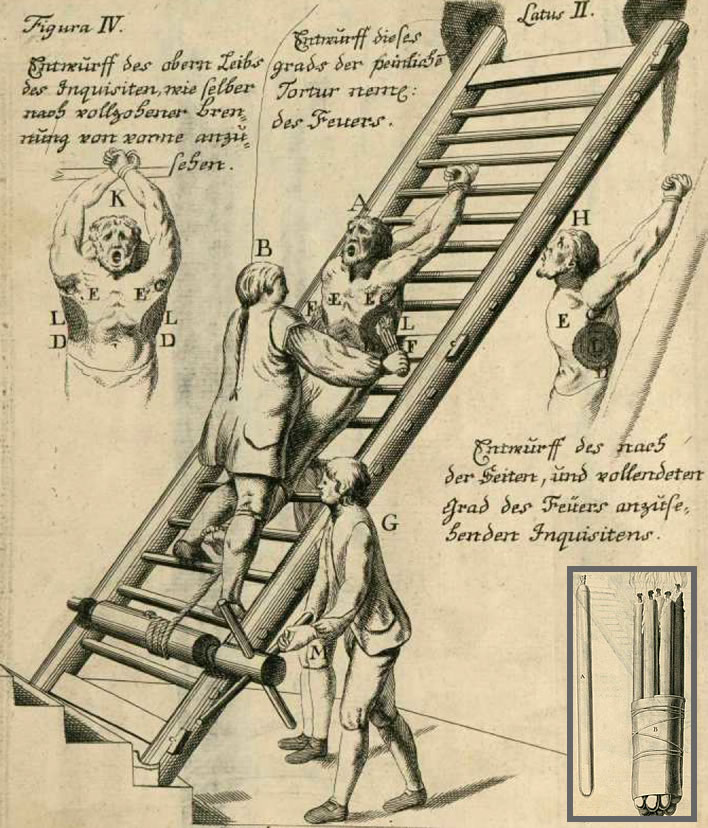 Figura IV.
Latus II.
Entwurff des obern Leibs
des Inquisiten, wie selber
nach vollzohener Bren„
nung von vorne anzu„
sehen.
Entwurff dieses
grads der peinlichē
Tortur neml:
des Feuers.
K
A
B
H
E E C
L L
D D
F E E C
L
F
E
C
L
D
Entwurff des nach
der Seiten, und vollendeten
grad des Feüers anzuse„
henden Inquisitens.
G
M
A
B